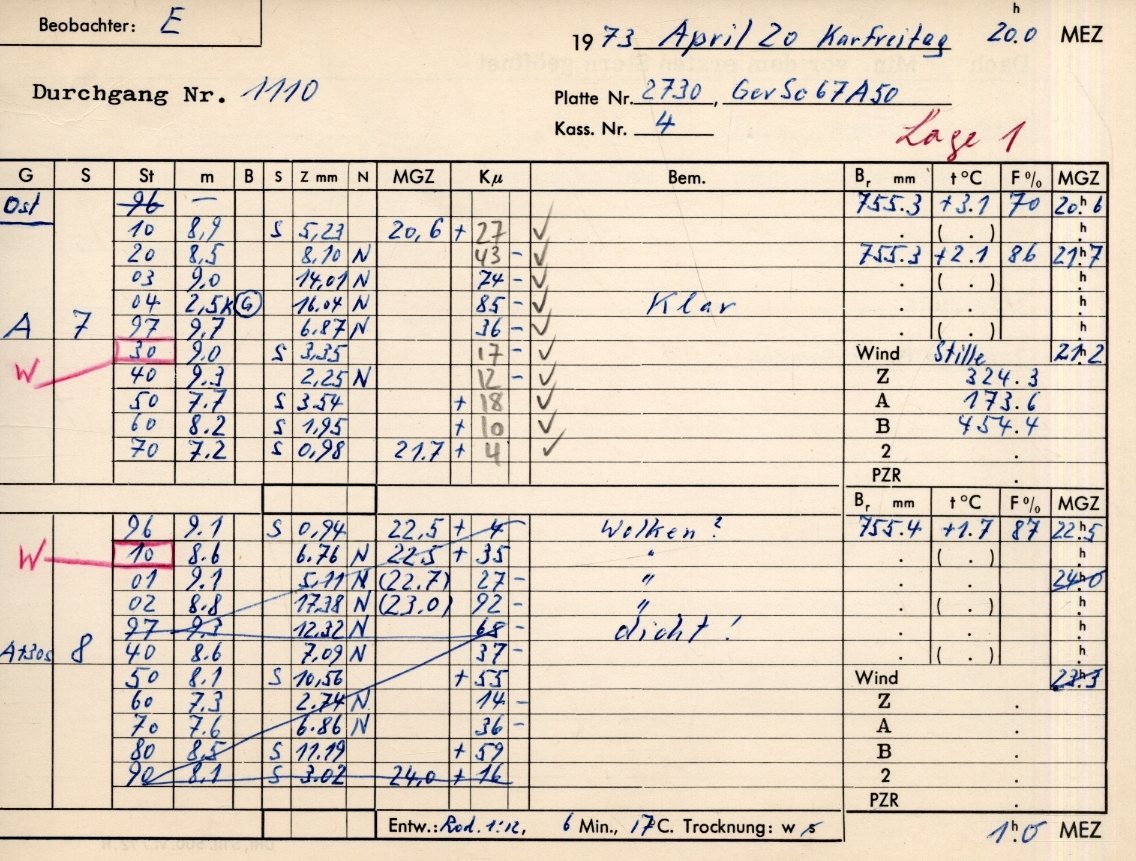 Beobachter: E
19 73 April 20 Karfreitag 20.0 h MEZ
Durchgang Nr. 1110
Platte Nr. 2730, GevSc67A50
Kass. Nr. 4
Lage 1
G S St m B S Z mm N MGZ Kμ Bem. Br mm t °C F % MGZ
Ost 96 — 755.3 +3.1 70 20h6
10 8,9 S 5,23 20,6 + 27 ✓ . ( . ) h
20 8,5 8,10 N 43 - ✓ 755.3 +2.1 86 21h7
03 9,0 14,01 N 74 - ✓ . ( . ) h
04 2,5K G 16.04 N 85 - ✓ Klar . h
A 7 97 9,7 6.87 N 36 - ✓ . ( . ) h
W 30 9,0 S 3,35 17 - ✓ Wind Stille 21h2
40 9.3 2,25 N 12 - ✓ Z 324.3
50 7.7 S 3.54 + 18 ✓ A 173.6
60 8.2 S 1,95 + 10 ✓ B 454.4
70 7.2 S 0,98 21.7 + 4 ✓ 2 .
PZR
Br mm t °C F % MGZ
96 9.1 S 0,94 22,5 + 4 Wolken? 755.4 +1.7 87 22h5
W 10 8.6 6.76 N 22.5 + 35 " . ( . ) h
01 9.1 5,11 N (22.7) 27 - " . 24h0
02 8.8 17.38 N (23.0) 92 - " . ( . ) h
97 9.3 12,32 N 68 - dicht! . h
A+30s 8 40 8.6 7,09 N 37 - . ( . ) h
50 8.1 S 10,56 + 55 Wind 23h3
60 7.3 2.74 N 14 - Z .
70 7.6 6.86 N 36 - A .
80 8,5 S 11.19 + 59 B .
90 8.1 S 3.02 24,0 + 16 2 .
PZR .
Entw.: Rod. 1:12, 6 Min., 17°C. Trocknung: w s
1h.0 MEZ